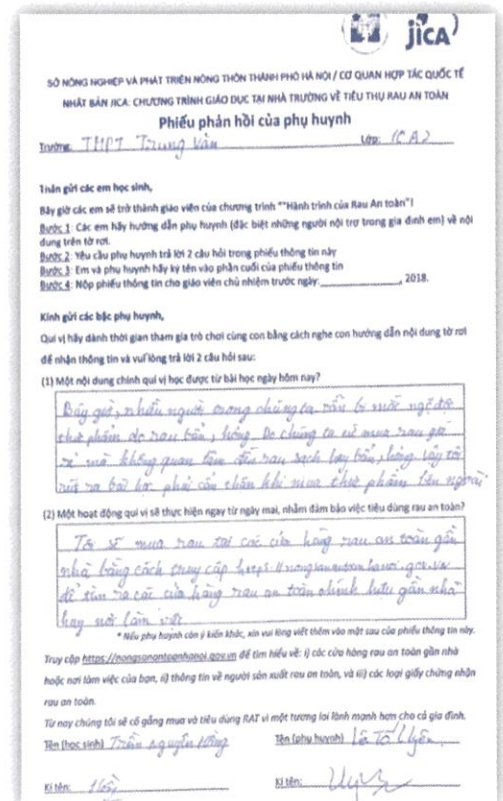 jICA
SỞ NÔNG NGHIỆP VÀ PHÁT TRIỂN NÔNG THÔN THÀNH PHỐ HÀ NỘI / CƠ QUAN HỢP TÁC QUỐC TẾ
NHẬT BẢN JICA: CHƯƠNG TRÌNH GIÁO DỤC TẠI NHÀ TRƯỜNG VỀ TIÊU THỤ RAU AN TOÀN
Phiếu phản hồi của phụ huynh
Trường: THPT Trung Văn Lớp:
Thân gửi các em học sinh,
Bây giờ các em sẽ trở thành giáo viên của chương trình ""Hành trình của Rau An toàn"!
Bước 1: Các em hãy hướng dẫn phụ huynh (đặc biệt những người nội trợ trong gia đình em) về nội
dung trên tờ rơi.
Bước 2: Yêu cầu phụ huynh trả lời 2 câu hỏi trong phiếu thông tin này
Bước 3: Em và phụ huynh hãy ký tên vào phần cuối của phiếu thông tin
Bước 4: Nộp phiếu thông tin cho giáo viên chủ nhiệm trước ngày:____________, 2018.
Kính gửi các bậc phụ huynh,
Quí vị hãy dành thời gian tham gia trò chơi cùng con bằng cách nghe con hướng dẫn nội dung tờ rơi
để nhận thông tin và vui lòng trả lời 2 câu hỏi sau:
(1) Một nội dung chính quí vị học được từ bài học ngày hôm nay?
Bây giờ, nhiều người trong chúng ta vẫn bị mắc ngộ độc
thực phẩm do rau bẩn, hỏng. Do chúng ta cứ mua rau giá
rẻ mà không quan tâm đến rau sạch hay bẩn, hỏng. Vậy tôi
rút ra bài học phải cẩn thận khi mua thực phẩm bên ngoài
(2) Một hoạt động quí vị sẽ thực hiện ngay từ ngày mai, nhằm đảm bảo việc tiêu dùng rau an toàn?
Tôi sẽ mua rau tại các cửa hàng rau an toàn gần
nhà bằng cách truy cập https://nongsanantoanhanoi.gov.vn
để tìm ra các cửa hàng rau an toàn gần nhà
hay nơi làm việc
* Nếu phụ huynh còn ý kiến khác, xin vui lòng viết thêm vào mặt sau của phiếu thông tin này.
Truy cập https://nongsanantoanhanoi.gov.vn để tìm hiểu về: i) các cửa hàng rau an toàn gần nhà
hoặc nơi làm việc của bạn, ii) thông tin về người sản xuất rau an toàn, và iii) các loại giấy chứng nhận
rau an toàn.
Từ nay chúng tôi sẽ cố gắng mua và tiêu dùng RAT vì một tương lai lành mạnh hơn cho cả gia đình.
Tên (học sinh) Trần Nguyễn Hồng Tên (phụ huynh) Lê Tố Uyên
Kí tên: Hồng Kí tên: Uyên